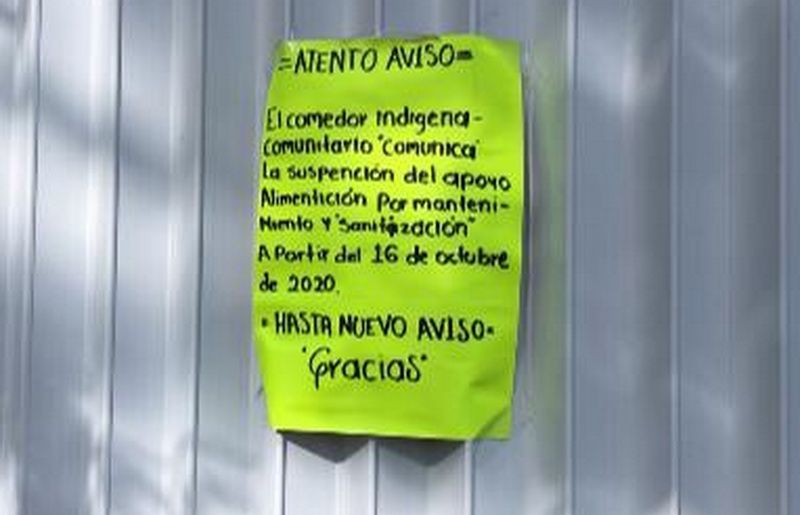 =ATENTO AVISO=
El comedor indigena-
comunitario "comunica"
La suspención del apoyo
Alimentición por manteni-
miento y "sanitización"
A Partir del 16 de octubre
de 2020.
• HASTA NUEVO AVISO•
"Gracias"